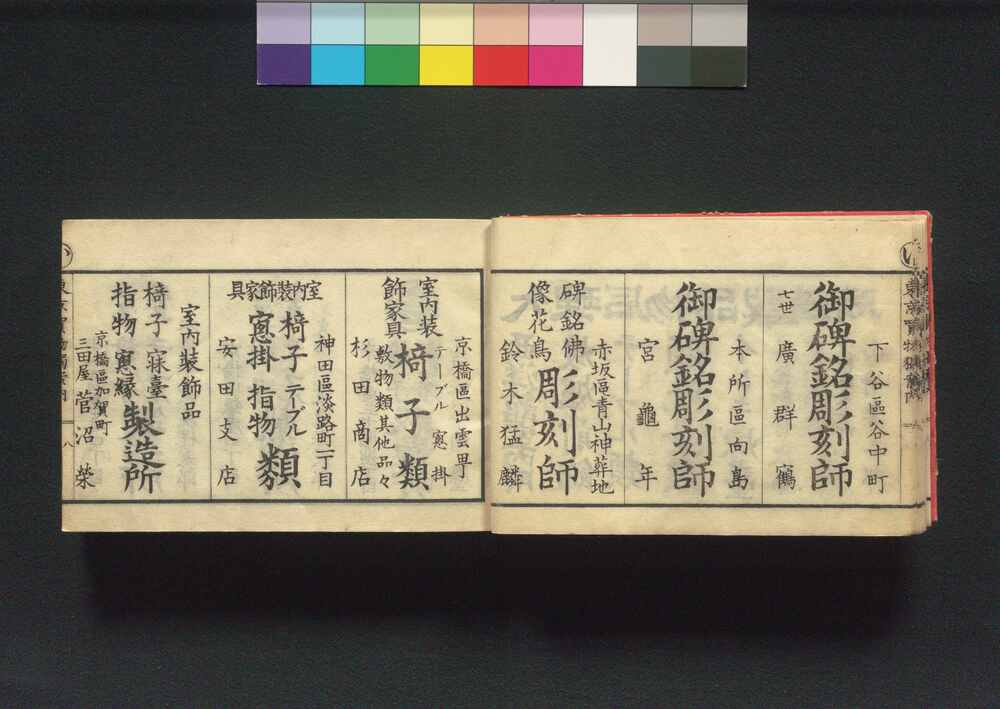 下谷區谷中町
御碑銘彫刻師
七世 廣群鶴
本所區向島
御碑銘彫刻師
宮龜年
赤坂區青山神葬地
碑銘佛
像花鳥
彫刻師
鈴木猛麟
京橋區出雲町
室内装
飾家具
椅子類
テーブル 窓掛
敷物類其他品々
杉田商店
神田區淡路町二丁目
室内裝飾家具
椅子テーブル
窓掛 指物
類
安田支店
室内装飾品
椅子 寐臺
指物 窓縁
製造所
京橋區加賀町
三田屋 菅沼榮